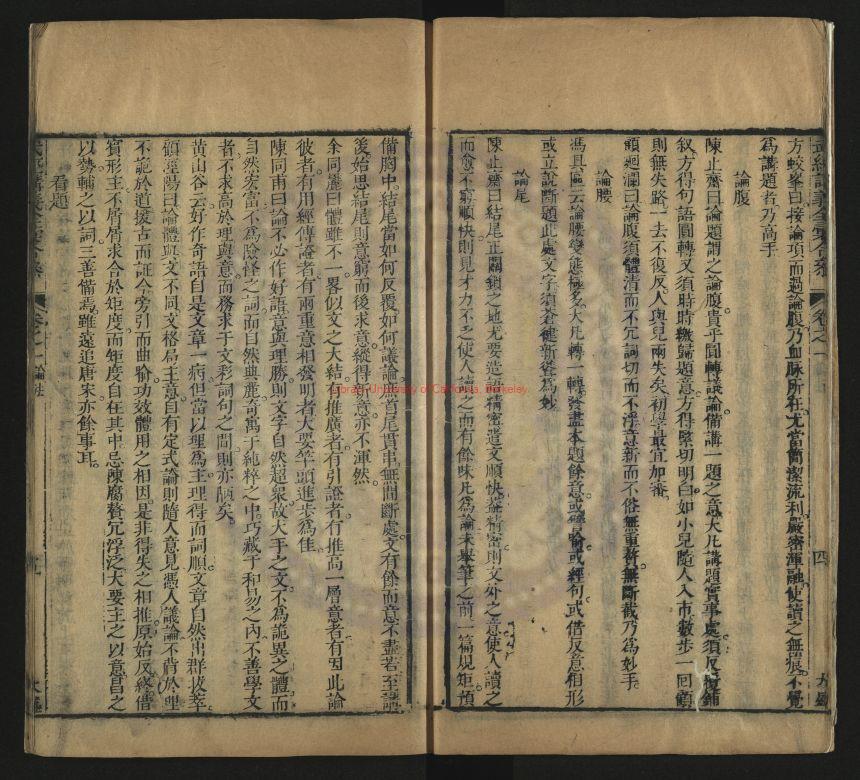 方蛟峯曰接論項而過論腹乃血脉所在尤當簡潔流利嚴密渾融使讀之無痕不覺
為講題者乃高手
論腹
陳止齋曰論題講之論腹貴乎圓轉議論備講一題之意大凡講題實事處須反覆鋪
叙方得句語圓轉又須時時繳歸題意方得緊切明白如小兒隨人入市數步一回顧
則無失路一去不復反人與兒兩失矣初學最宜加審
顧廻瀾曰論腹須體清而不冗詞切而不浮意新而不俗無重贅無斷截乃為妙手
論腰
馮具區云論腰變態極多大凡轉一轉發盡本題餘意或譬喻或經句或借反意相形
或立說斷題此處文字須蒼健新奇為妙
論尾
陳止齋曰結尾正關鎖之地尤要造語精密遣文順快蓋精密則文外之意使人讀之
而愈不窮順快則見才力不乏使人讀之而有餘味凡為論未舉筆之前一篇規矩預
備胸中結尾當如何反覆如何議論首尾貫串無間斷處文有餘而意不盡若至講
後始思結尾則意窮而後求意縱得新意亦不渾然
余同麓曰體雖不一畧似文之大結有推廣者有引證者有推高一層意者有因此論
彼者有用經傳諳者有兩重意相發明者大要竿頭進步為佳
陳同甫曰論不必作好語意與理勝則文字自然超衆故大手之文不為詭異之體而
自然宏富不為險怪之詞而自然典麗奇寓于純粹之中巧藏于和易之內不善學文
者不求高於理與意而務求于文彩詞句之間則亦陋矣
黃山谷云好作奇語自是文章一病但當以理為主理得而詞順文章自然出群拔萃
顧涇陽曰論體與文不同文格局主意自有定式論則隨人意見憑人議論不背於理
不詭於道援古而証今旁引而曲喻功效體用之相因是非得失之相推原始反終借
賓形主不屑屑求合於矩度而矩度自在其中忌陳腐贅冗浮泛大要主之以意昌之
以勢輔之以詞三善備焉雖遠追唐宋亦餘事耳
看題
卷之一
論社
四
Library, University of California, Berkeley